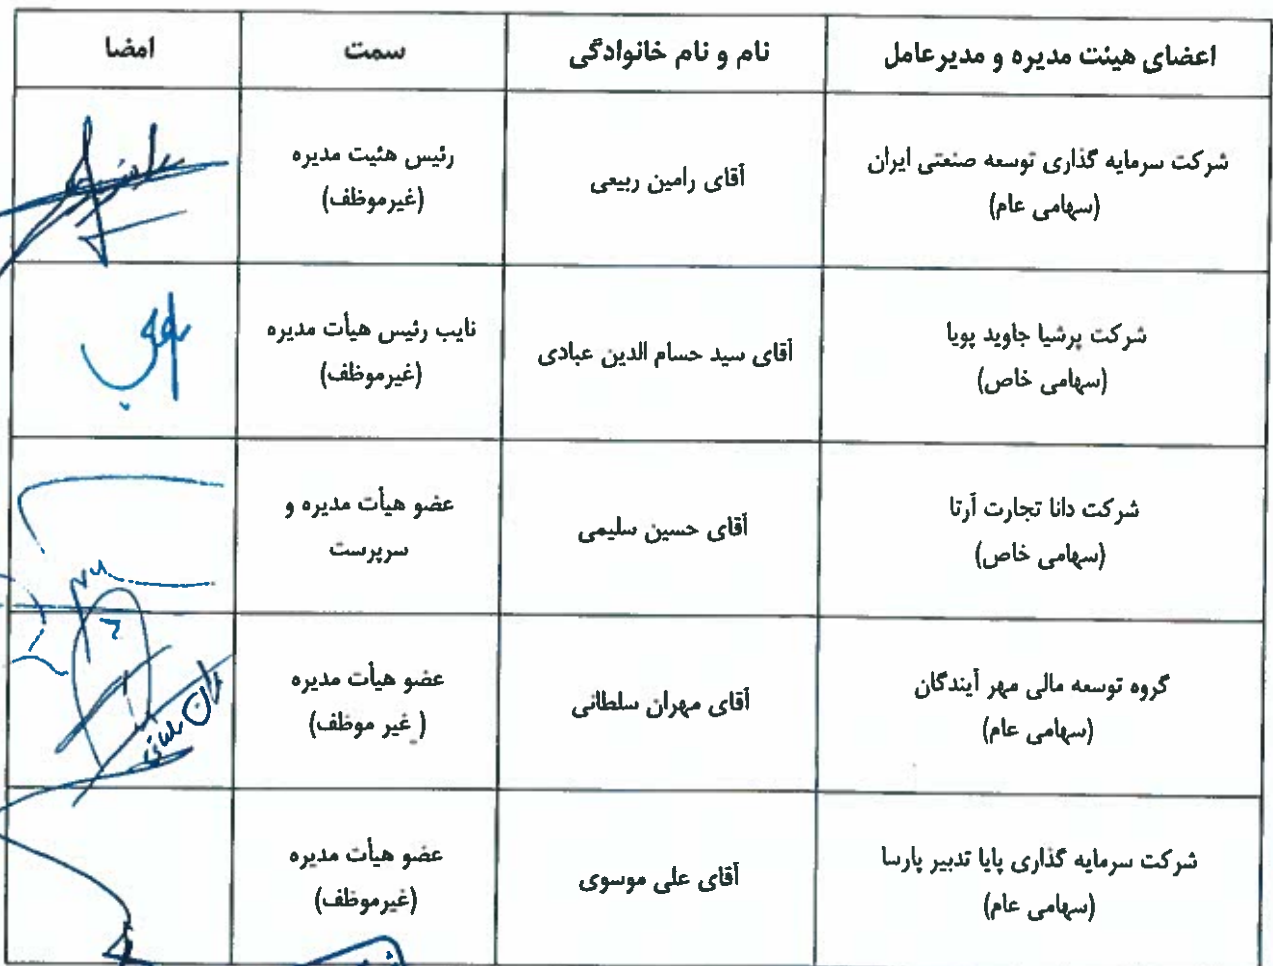 اعضای هیئت مدیره و مدیرعامل نام و نام خانوادگی سمت امضا
شرکت سرمایه گذاری توسعه صنعتی ایران
(سهامی عام)
آقای رامین ربیعی
رئیس هئیت مدیره
(غیرموظف)
شرکت پرشیا جاوید پویا
(سهامی خاص)
آقای سید حسام الدین عبادی
نایب رئیس هیأت مدیره
(غیرموظف)
شرکت دانا تجارت آرتا
(سهامی خاص)
آقای حسین سلیمی
عضو هیأت مدیره و
سرپرست
گروه توسعه مالی مهر آیندگان
(سهامی عام)
آقای مهران سلطانی
عضو هیأت مدیره
( غیر موظف)
شرکت سرمایه گذاری پایا تدبیر پارسا
(سهامی عام)
آقای علی موسوی
عضو هیأت مدیره
(غیرموظف)